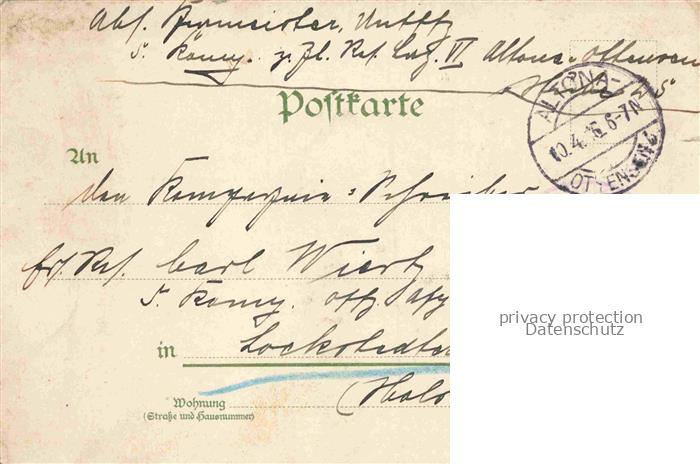 Abs. Burmeister, Untffz
5. Komp. z. Zt. Res. Laz. VI Altona-Ottensen
Postkarte
ALTONA-
10.4.15. 6-7N
OTTENSEN
An
den Kompagnie-Schreiber
Carl
5. Komp.
in Lockstedter
Wohnung (Hols
(Straße und Hausnummer)
privacy protection
Datenschutz